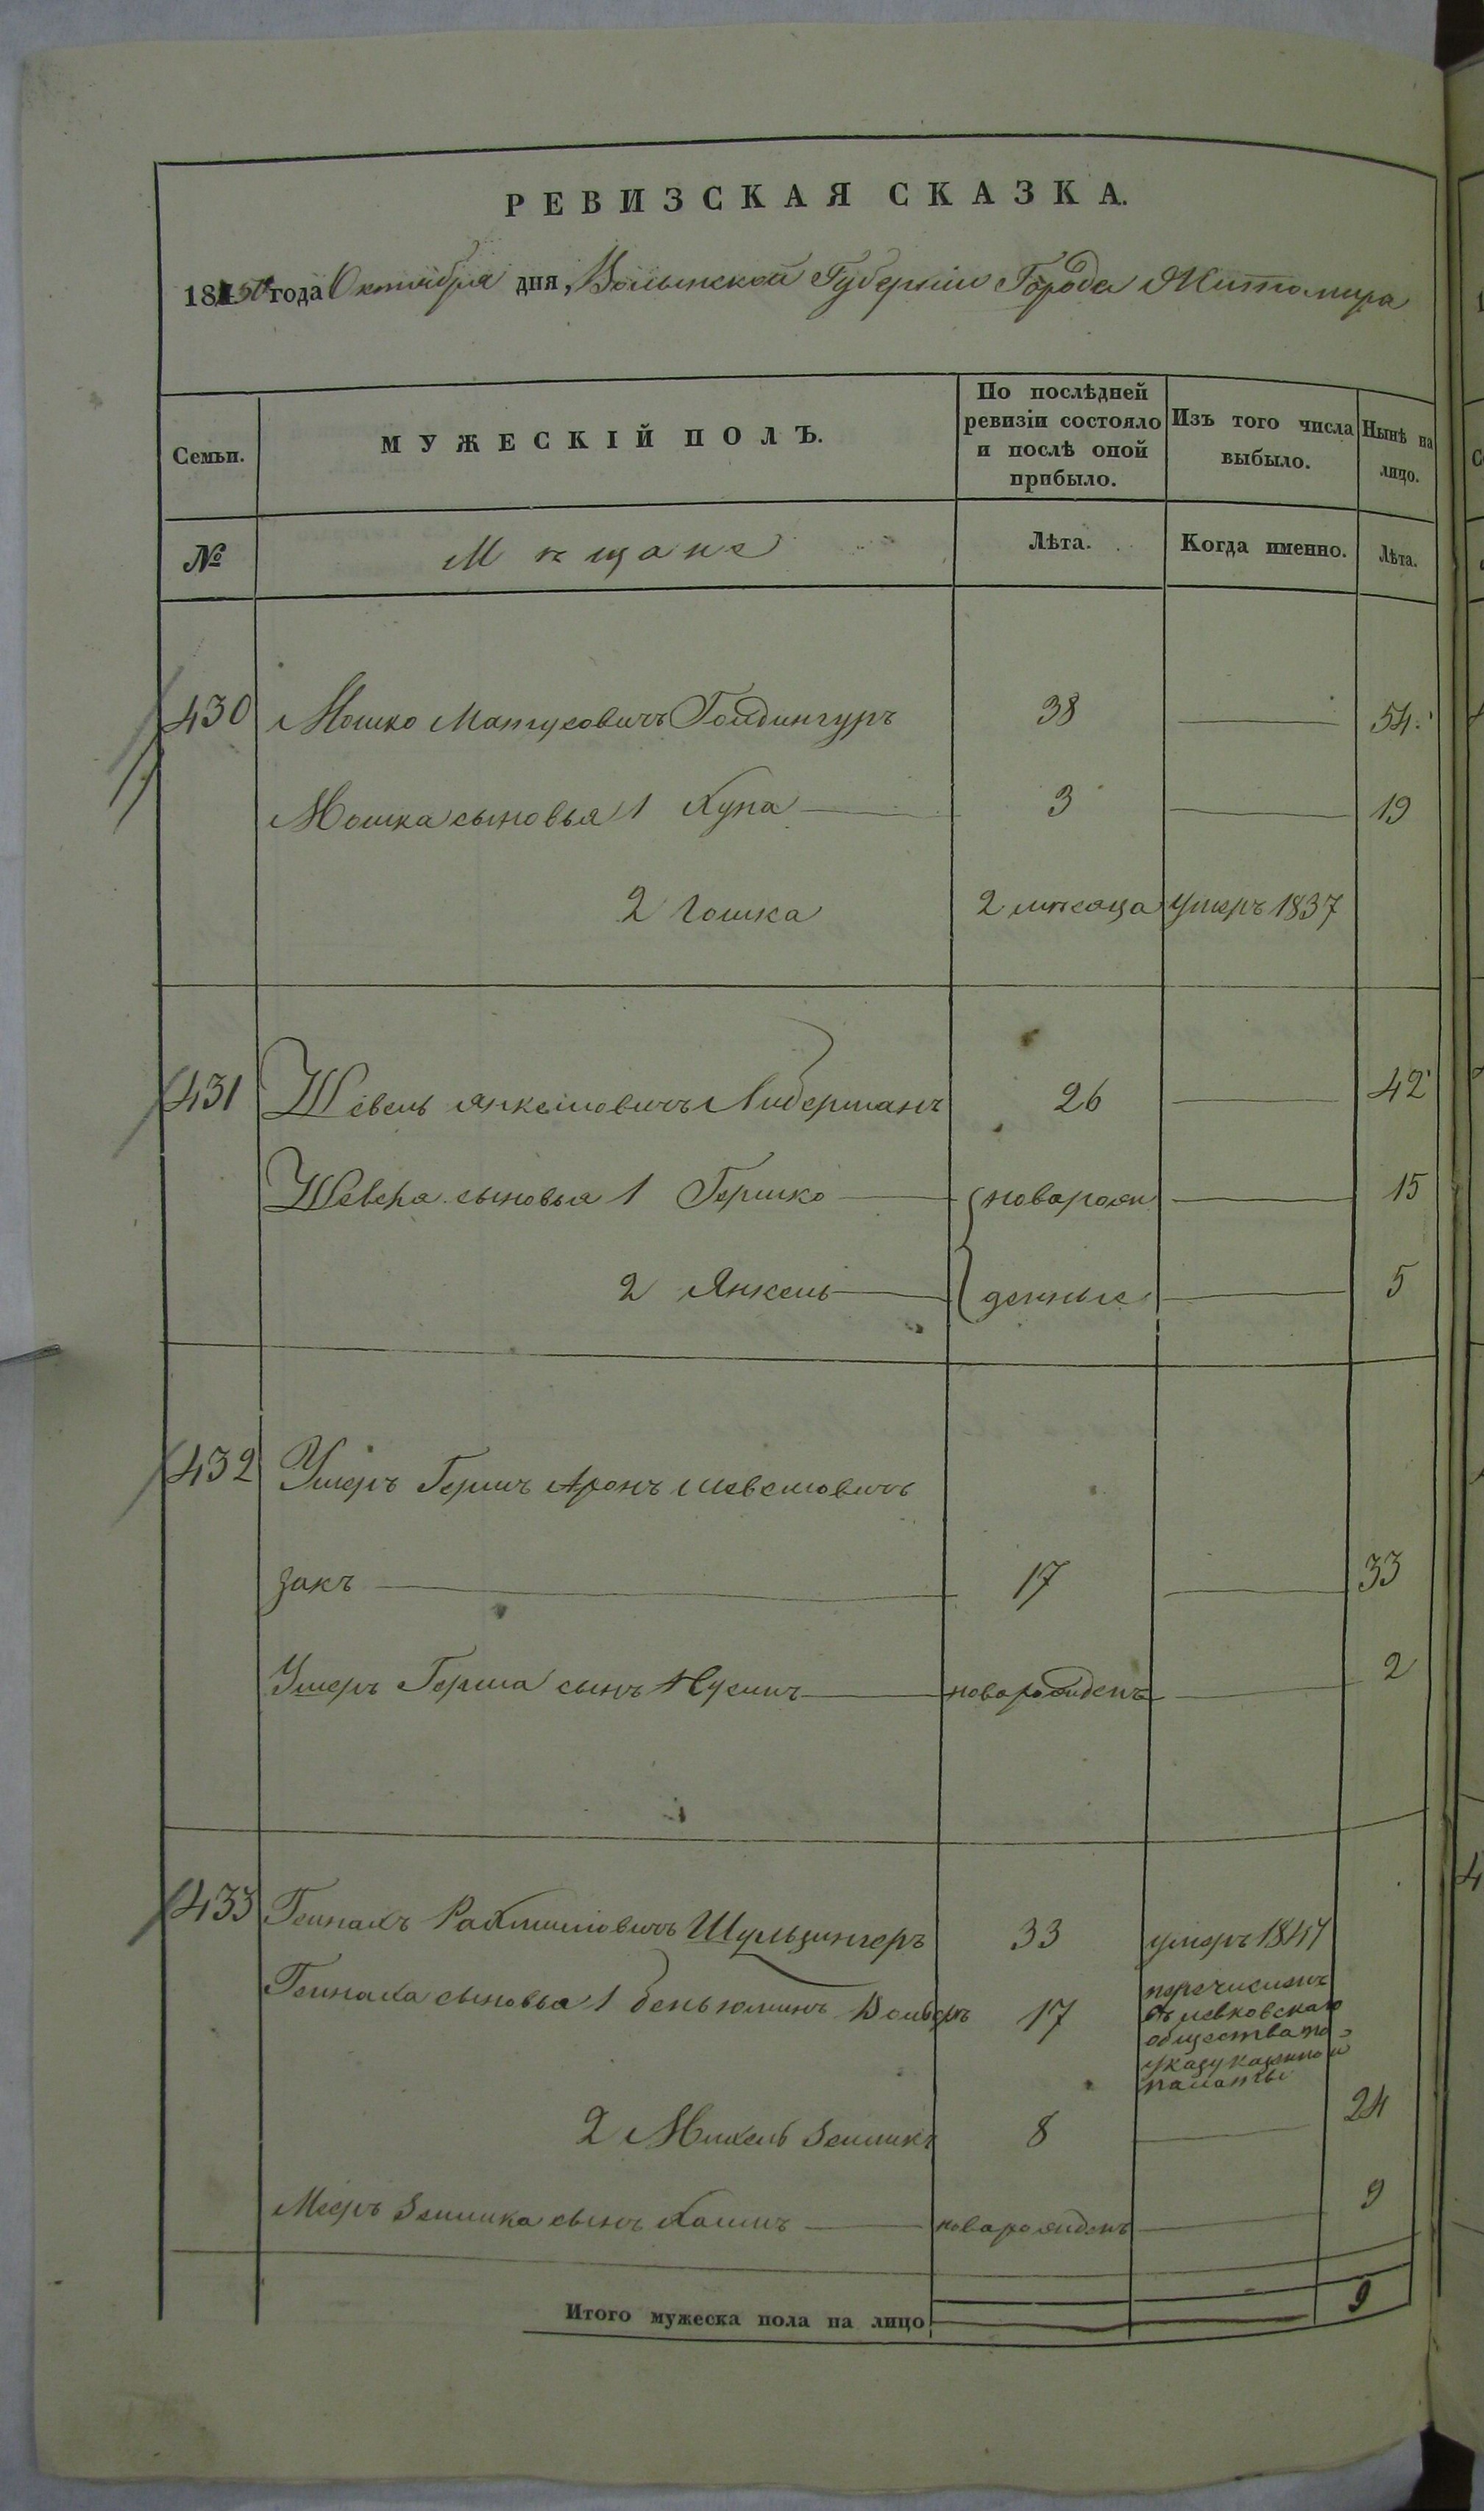 РЕВИЗСКАЯ СКАЗКА.
1850 года Октября дня, Волынской Губерніи Города Житомира
Семьи. МУЖЕСКІЙ ПОЛЪ. По послѣдней ревизіи состояло и послѣ оной прибыло. Изъ того числа выбыло. Нынѣ на лицо.
№ Мѣщане Лѣта. Когда именно. Лѣта.
430 Мошко Матусовичъ Гольдингуръ 38 54.
Мошка сыновья 1 Хуна 3 19
2 Гошка 2 мѣсяца умеръ 1837
431 Шевель Янкелiовичъ Либерманъ 26 42
Шевеля сыновья 1 Гершко новорож 15
2 Янкель денные 5
432 Ушеръ Гершъ Аронъ Шевелiовичъ
Закъ 17 33
Ушеръ Герша сынъ Нусинъ новарожденъ 2
433 Геннахъ Рахмилiовичъ Шульзингеръ 33 умеръ 1847
Геннаха сыновья 1 беньюминъ Вольфъ 17 перечисленъ
въ левковскаго
общества по
указу казенной
палаты
2 Михель Зелликъ 8 24
Мееръ Зелика сынъ Хаимъ новарожденъ 9
Итого мужеска пола на лицо 9